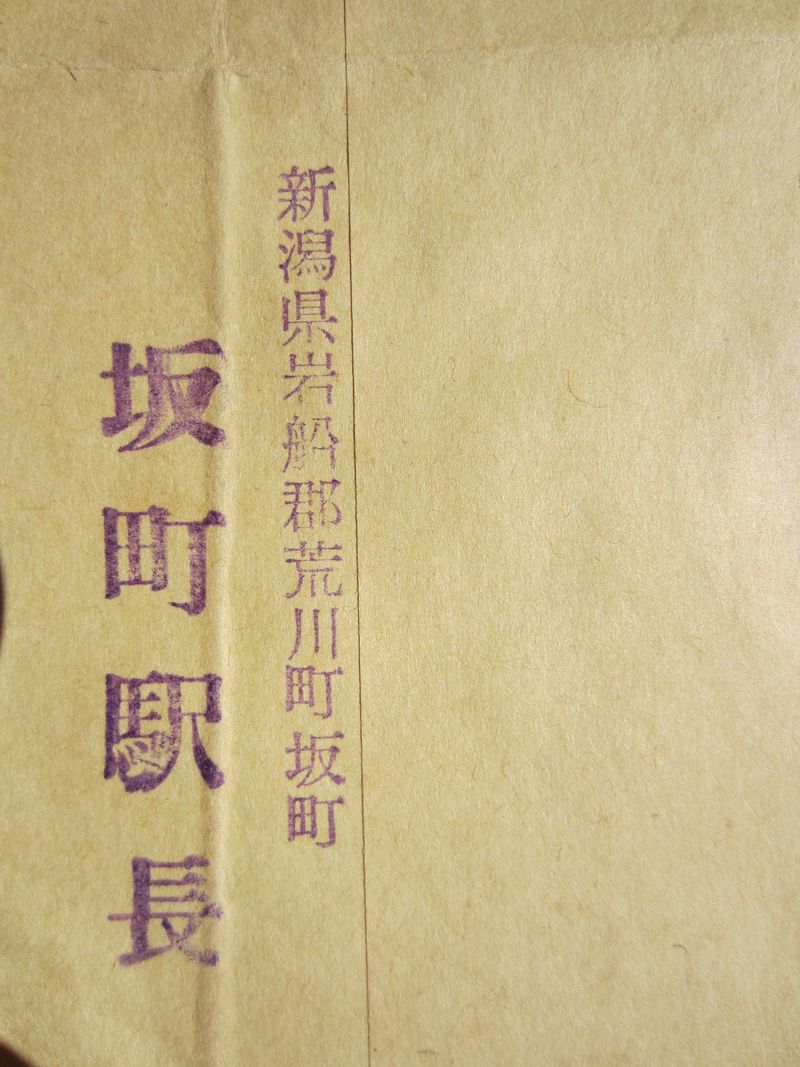 新潟県岩船郡荒川町坂町
坂町駅長